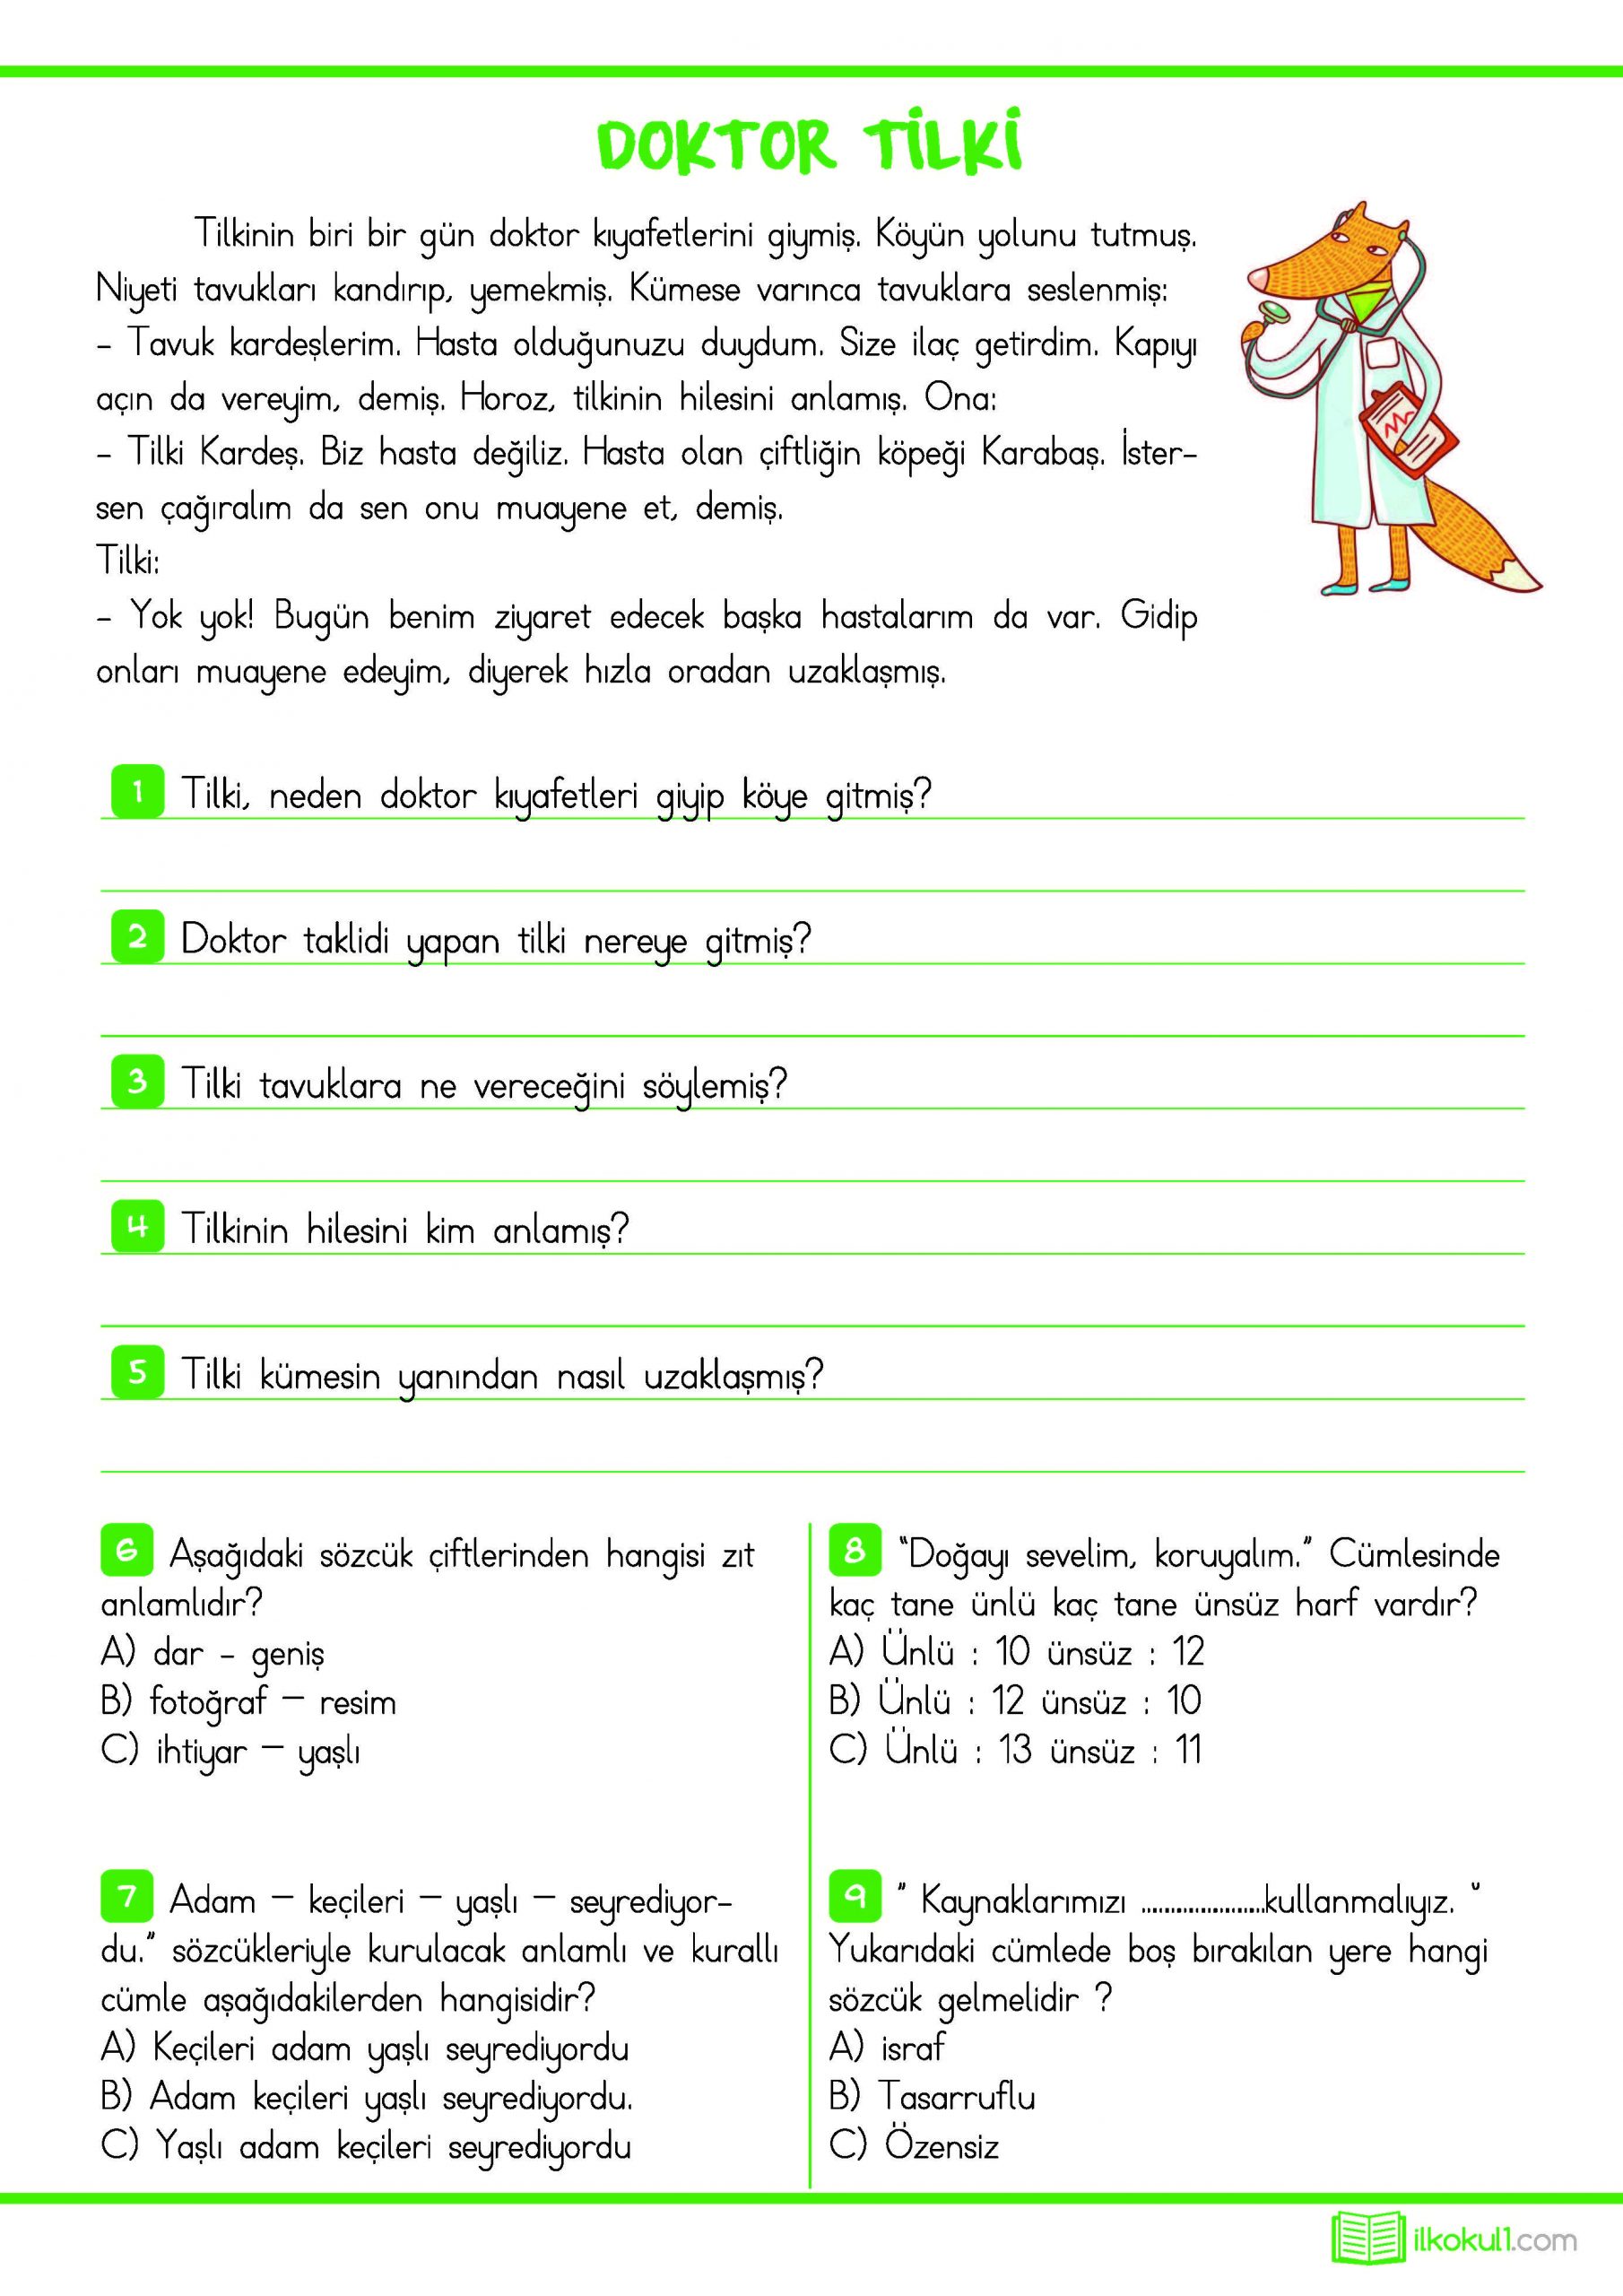 DOKTOR TİLKİ
Tilkinin biri bir gün doktor kıyafetlerini giymiş. Köyün yolunu tutmuş.
Niyeti tavukları kandırıp, yemekmiş. Kümese varınca tavuklara seslenmiş:
- Tavuk kardeşlerim. Hasta olduğunuzu duydum. Size ilaç getirdim. Kapıyı
açın da vereyim, demiş. Horoz, tilkinin hilesini anlamış. Ona:
- Tilki Kardeş. Biz hasta değiliz. Hasta olan çiftliğin köpeği Karabaş. İster-
sen çağıralım da sen onu muayene et, demiş.
Tilki:
- Yok yok! Bugün benim ziyaret edecek başka hastalarım da var. Gidip
onları muayene edeyim, diyerek hızla oradan uzaklaşmış.
1 Tilki, neden doktor kıyafetleri giyip köye gitmiş?
2 Doktor taklidi yapan tilki nereye gitmiş?
3 Tilki tavuklara ne vereceğini söylemiş?
4 Tilkinin hilesini kim anlamış?
5 Tilki kümesin yanından nasıl uzaklaşmış?
6 Aşağıdaki sözcük çiftlerinden hangisi zıt
anlamlıdır?
A) dar - geniş
B) fotoğraf – resim
C) ihtiyar – yaşlı
7 Adam – keçileri – yaşlı – seyrediyor-
du.” sözcükleriyle kurulacak anlamlı ve kurallı
cümle aşağıdakilerden hangisidir?
A) Keçileri adam yaşlı seyrediyordu
B) Adam keçileri yaşlı seyrediyordu.
C) Yaşlı adam keçileri seyrediyordu
8 “Doğayı sevelim, koruyalım.” Cümlesinde
kaç tane ünlü kaç tane ünsüz harf vardır?
A) Ünlü : 10 ünsüz : 12
B) Ünlü : 12 ünsüz : 10
C) Ünlü : 13 ünsüz : 11
9 ” Kaynaklarımızı .....................kullanmalıyız. “
Yukarıdaki cümlede boş bırakılan yere hangi
sözcük gelmelidir ?
A) israf
B) Tasarruflu
C) Özensiz
ilkokul1.com